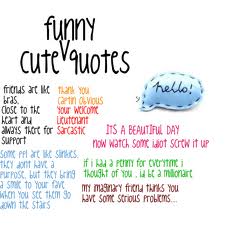 funny
cute quotes
friends are like
bras,
close to the
heart and
always there for
support
thank you
captin obvious
your welcome
Lieutenant
Sarcastic
hello!
ITS A BEAUTIFUL DAY
now watch some idiot screw it up
some ppl are like slinkies,
they dont have a
purpose, but they bring
a smile to your face
when you see them go
down the stairs
if i had a penny for everytime i
thought of you , id be a millionaire
my imaginary friend thinks you
have some serious problems...